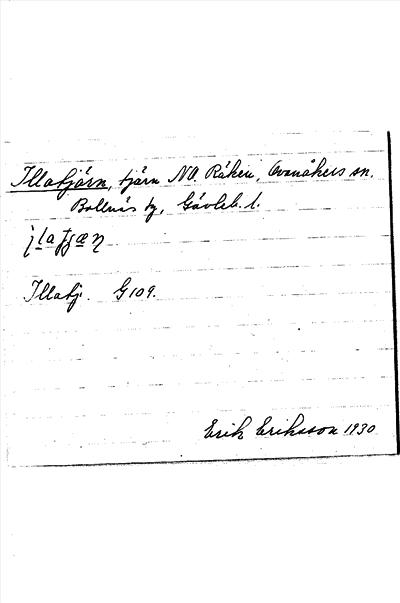 Illatjärn, tjärn NO. Råken, Ovanåkers sn.
Bollnäs tg, Gävleb. l.
Illatj. G 109.
Erik Eriksson 1930